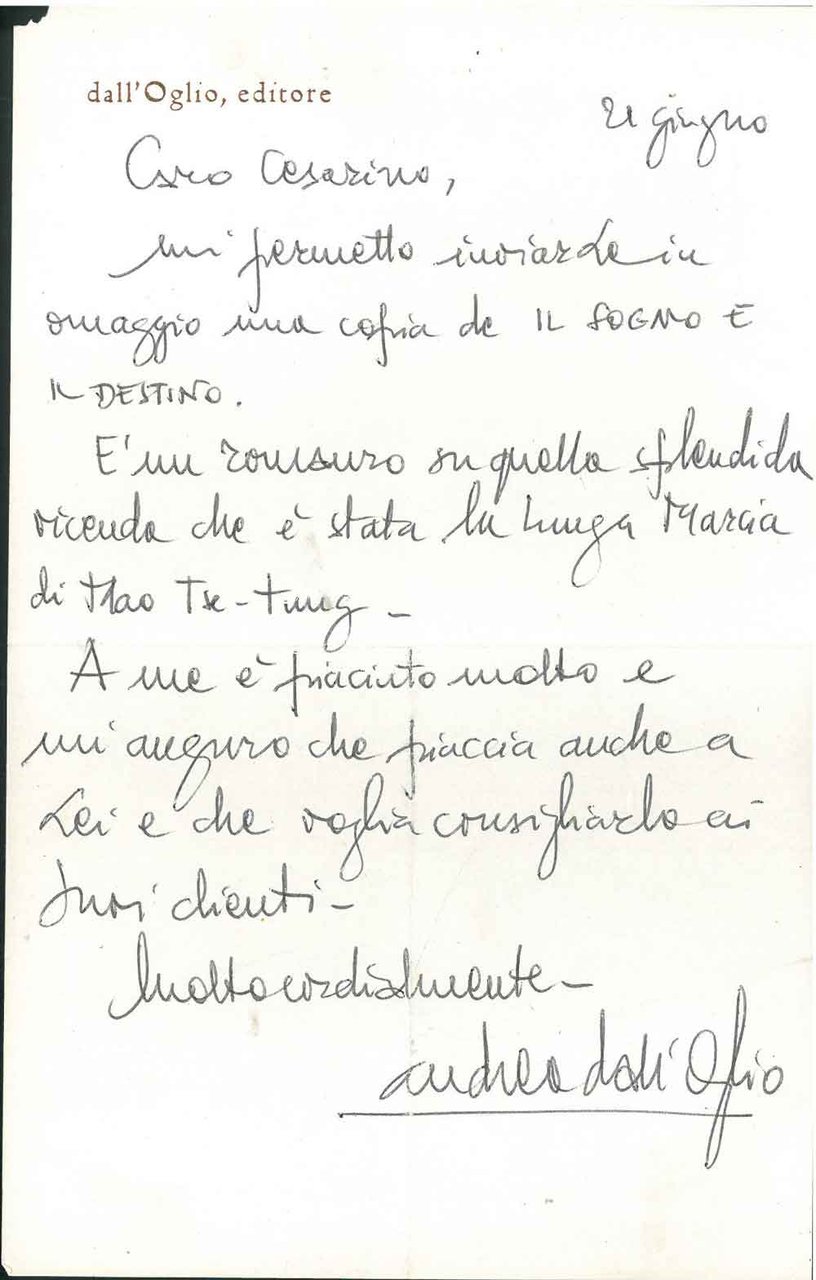 dall'Oglio, editore
21 giugno
Caro Cesarino,
mi permetto inviarLe in
omaggio una copia de IL SOGNO E
IL DESTINO.
E' un romanzo su quella splendida
vicenda che è stata la Lunga Marcia
di Mao Tse-tung -
A me è piaciuto molto e
mi auguro che piaccia anche a
Lei e che voglia consigliarlo ai
Suoi clienti -
Molto cordialmente -
andrea dall'Oglio